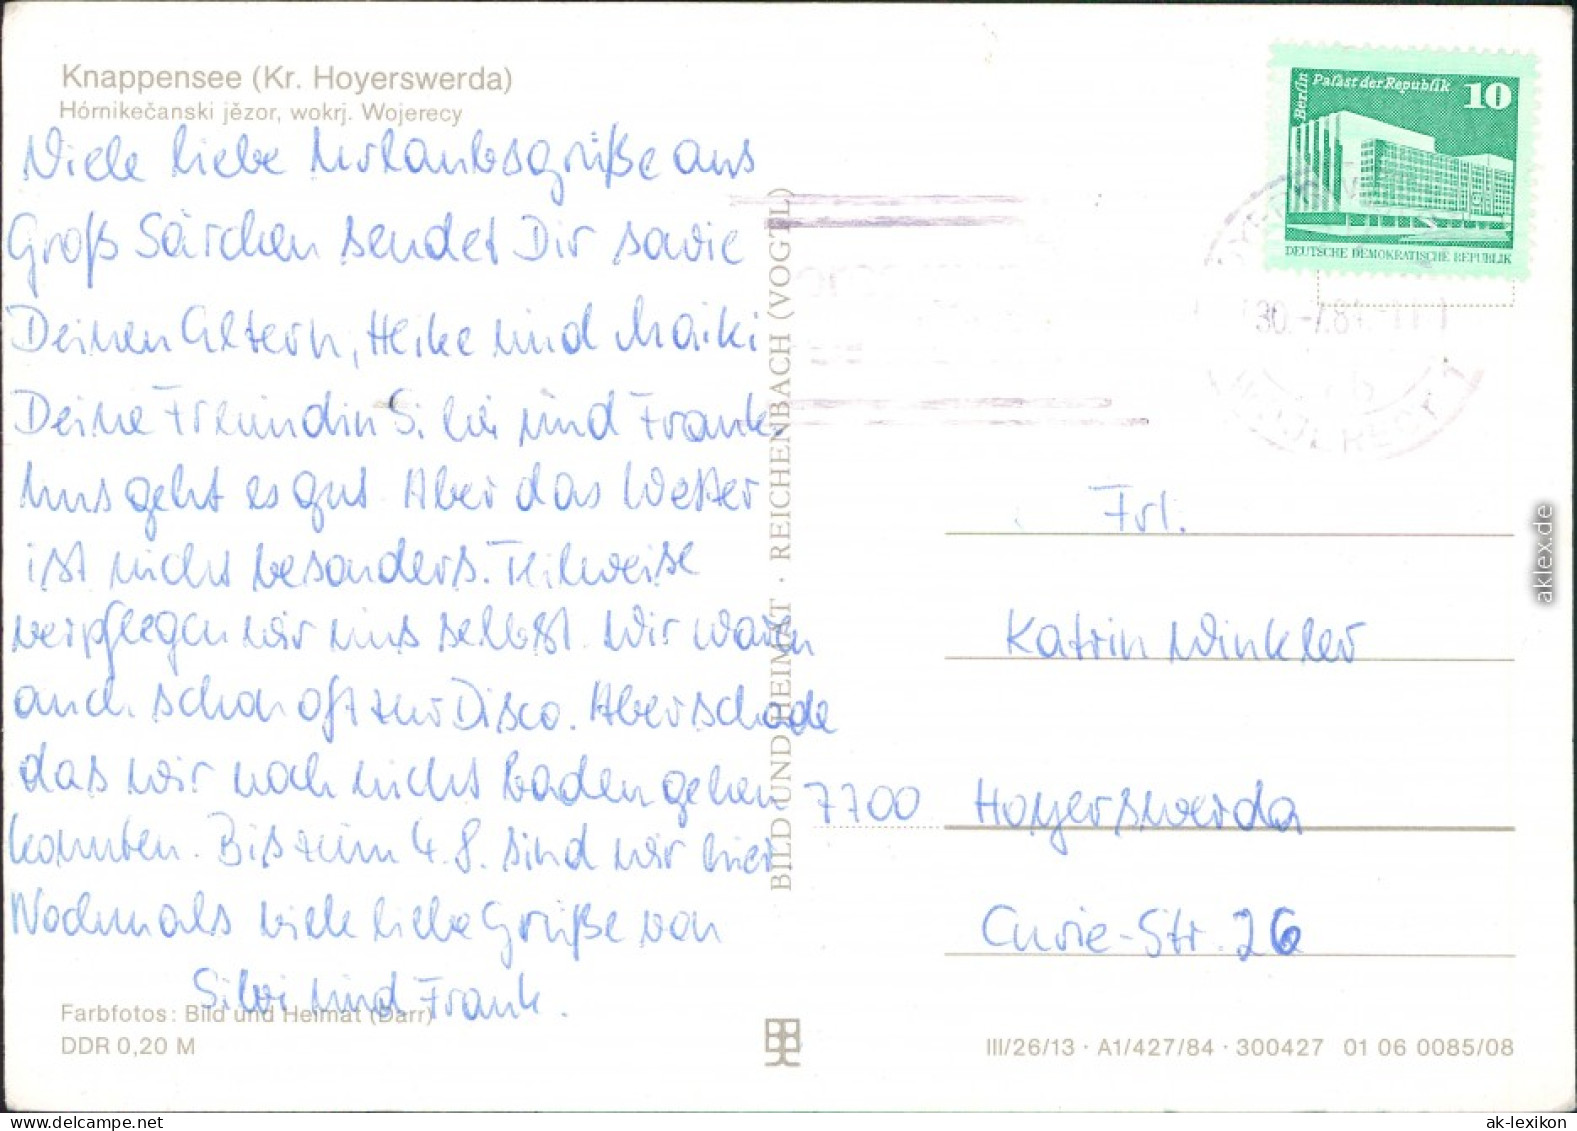 Knappensee (Kr. Hoyerswerda)
Hórnikečanski jězor, wokrj. Wojerecy
Viele liebe Urlaubsgrüße aus
Groß Särchen sendet Dir sowie
Deinen Eltern, Heike und Maiki
Deine Freundin Silvi und Frank.
Uns geht es gut. Aber das Wetter
ist nicht besonders. Teilweise
verpflegen wir uns selbst. Wir waren
auch schon oft zur Disco. Aber schade
das wir noch nicht baden gehen
konnten. Bis zum 4.8. sind wir hier
Nochmals viele liebe Grüße von
Silvi und Frank.
Farbfotos: Bild und Heimat (Darr)
DDR 0,20 M
BILD UND HEIMAT · REICHENBACH (VOGTL)
Berlin
Palast der Republik
10
DEUTSCHE DEMOKRATISCHE REPUBLIK
Frl.
Katrin Winkler
7700 Hoyerswerda
Curie-Str. 26
III/26/13 · A1/427/84 · 300427 01 06 0085/08
aklex.de
ak-lexikon